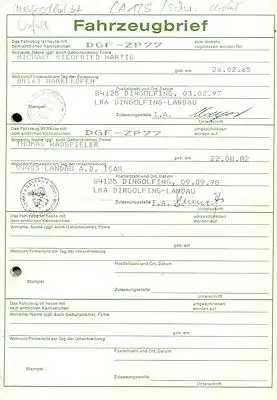 Unfall
Fahrzeugbrief
Das Fahrzeug ist heute mit dem amtlichen Kennzeichen
DGF-ZP77
zum Verkehr zugelassen worden für
Vorname, Name (ggf. auch Geburtsname), Firma
MICHAEL SIEGFRIED HARTIG
geb. am
26.02.65
Wohnort/Firmensitz am Tag der Zulassung
84163 MARKLKOFEN
Postleitzahl und Ort, Datum
84125 DINGOLFING, 03.02.97
LRA DINGOLFING-LANDAU
Zulassungsstelle I.A.
Unterschrift
Das Fahrzeug ist heute mit dem amtlichen Kennzeichen
DGF-ZP77
umgeschrieben worden auf
Vorname, Name (ggf. auch Geburtsname), Firma
THOMAS RADSPIELER
geb. am
22.08.82
Wohnort/Firmensitz am Tag der Umschreibung
94405 LANDAU A.D. ISAR
Postleitzahl und Ort, Datum
84125 DINGOLFING, 09.09.98
LRA DINGOLFING-LANDAU
Zulassungsstelle I.A.
Unterschrift
Das Fahrzeug ist heute mit dem amtlichen Kennzeichen
umgeschrieben worden auf
Vorname, Name (ggf. auch Geburtsname), Firma
geb. am
Wohnort/Firmensitz am Tag der Umschreibung
Postleitzahl und Ort, Datum
Zulassungsstelle
Unterschrift
Das Fahrzeug ist heute mit dem amtlichen Kennzeichen
umgeschrieben worden auf
Vorname, Name (ggf. auch Geburtsname), Firma
geb. am
Wohnort/Firmensitz am Tag der Umschreibung
Postleitzahl und Ort, Datum
Zulassungsstelle
Unterschrift